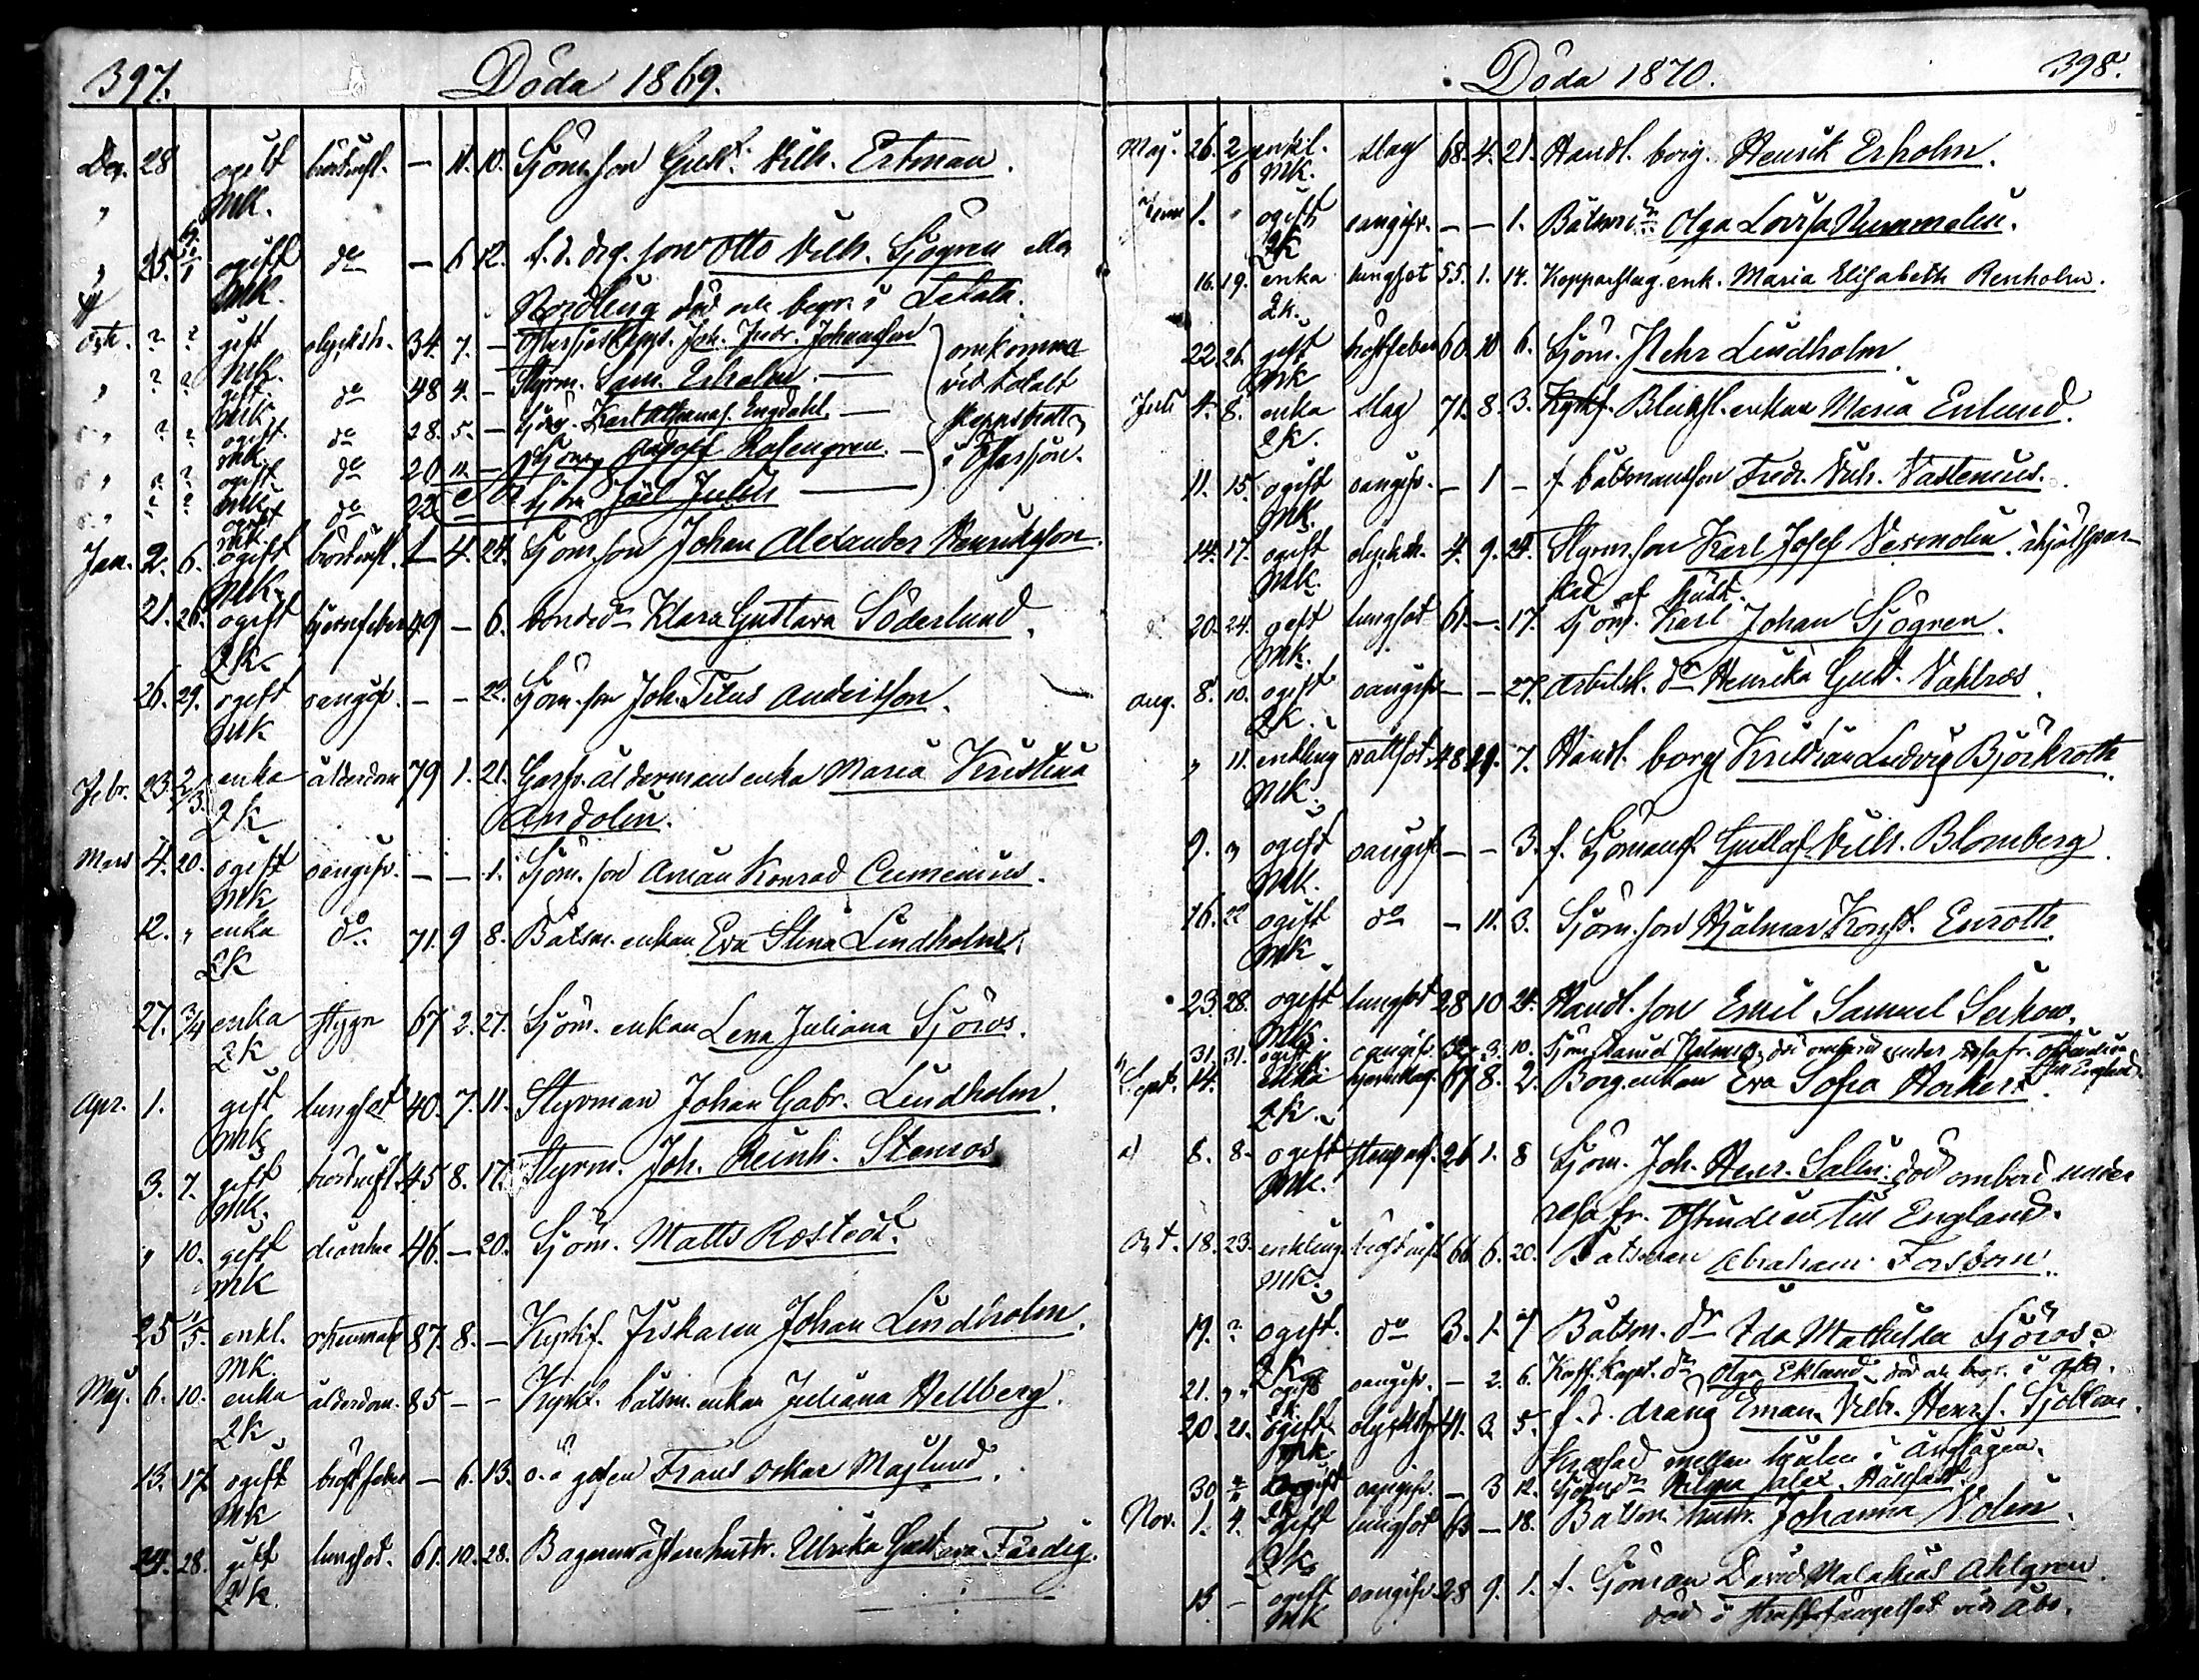 397.
Döda 1869.
Dec. 28 ogift bröstinfl. — 11. 10. Sjöm. son Gust. Vilh. Ertman.
" MK.
" 25. ogift do — 6 12. f. d. drg. son Otto Vilh. Sjögren eller
MK. Nordling död och begr. i Letala.
Okt. ? ? gift olycksh. 34. 7. — Östersjöskepp. Joh. Fredr. Johansson omkomna
MK.
" ? ? gift do 48 4. — Styrm. Sam. Erholm. vid totalt
MK.
" ? ? ogift do 28. 5. — Sjöm. Karl Athanas. Engdahl. skeppsbrott
MK.
" ? ? ogift do 20 11. — Sjöm. Adolf Rosengren. i Östersjön.
MK.
" ? ? ogift do 22 Joel Julin
MK.
Jan. 2. 6. ogift bröstinfl. 1 4. 24. Sjöm. son Johan Alexander Henriksson.
MK.
21. 26. ogift hjernfeber 49 — 6. bonded:r Klara Gustava Söderlund.
QK.
26. 29. ogift oangifv. — — 22. Sjöm. son Joh. Titus Andersson.
MK
Febr. 23. 2/3. enka ålderdom 79 1. 21. Garfv. åldermans enka Maria Kristina
QK Andolin.
Mars 4. 20. ogift oangifv. — — 1. Sjöm. son Arman Konrad Cumenius.
MK
12. " enka do 71. 9 8. Båtsm. enkan Eva Stina Lindholm.
QK
27. 3/4 enka stygn 67 2. 27. Sjöm. enkan Lena Juliana Sjöros.
QK
Apr. 1. gift lungsot 40. 7. 11. Styrman Johan Gabr. Lindholm.
MK
3. 7. gift bröstinfl. 45 8. 17. Styrm. Joh. Reinh. Stenros
MK.
" 10. gift diarrhe 46. — 20. Sjöm. Matts Rostedt.
MK
25 1/5. enkl. rheumat. 87. 8. — Kyrkf. Fiskaren Johan Lindholm.
MK
Maj. 6. 10. enka ålderdom. 85 — — Kyrkf. båtsm. enkan Juliana Hellberg.
QK
13. 17. ogift bröstfeber — 6. 13. o. ä gossen Frans Oskar Maslund.
MK
24. 28. gift lungsot. 61. 10. 28. Bagaremästarehustr. Ulrika Gustava Färdig.
QK.
Döda 1870.
398.
Maj. 26. 2/6 enkl. slag 68. 4. 21. Handl. borg. Henrik Erholm.
MK.
Juni 1. " ogift oangifv. — — 1. Båtsm. d:r Olga Lovisa Nummelin.
QK
16. 19. enka lungsot 55. 1. 14. Kopparslag. enk. Maria Elisabeth Renholm.
QK.
22. 26. gift bröstfeber 60. 10 6. Sjöm. Pehr Lindholm.
MK
Juli 4. 8. enka slag 71. 8. 3. Kyrkf. Blecksl. enkan Maria Enlund.
QK.
11. 15. ogift oangifv. — 1 — f. båtsmansson Fredr. Vilh. Vastenius.
MK.
14. 17. ogift olycksh. 4. 9. 24. Styrm. son Karl Josef Vermolin. ihjälspar-
MK. kad af häst.
20. 24. gift lungsot 61. — 17. Sjöm. Karl Johan Sjögren.
MK.
Aug. 8. 10. ogift oangifv. — — 27. Arbetsk. d:r Henrika Gust. Vahlros
QK.
" 11. enkling vattsot. 48 7. Handl. borg. Kristian Ludvig Björkroth.
MK.
9. " ogift oangifv. — — 3. f. Sjömans. Gustaf Vilh. Blomberg.
MK.
16. 22 ogift do — 11. 3. Sjöm. son Hjalmar Konst. Enroth.
MK
23. 28. ogift lungsot 28 10 24. Handl. son Emil Samuel Seikow.
MK.
31. 31. ogift oangifv. 3. 10. Sjöm. död ombord under resa fr. Ostindien
till England.
Sept. 14. enka hjernslag. 67 8. 2. Borg. enkan Eva Sofia Herkert.
QK.
8. 8. ogift 26 1. 8 Sjöm. Joh. Henr. Salin. död ombord under
MK. resa fr. Ostindien till England.
Okt. 18. 23. enkling bröstinfl. 66 6. 20. Båtsman Abraham Forsbom.
MK.
19. ? ogift. do 3. 1. 7 Båtsm. d:r Ida Mathilda Sjöros.
QK
21. " ogift oangifv. — 2. 6. Koff. Kapt. d:r Olga Eklund, död och begr. i
20. 21. ogift olycksh. 41. 3. 5. f. d. dräng Eman. Vilh. Henr. Sjöblom.
MK. Krossad mellan hjulen i ångsågen.
30 ogift oangifv. — 3 12. Sjöm. d:r Hilma Alex.
Nov. 1. 4. gift lungsot 63 — 18. Båtsm. hustr. Johanna Nolin.
QK.
15 — ogift oangifv. 28 9. 1. f. Sjöman David Malakias Ahlgren.
MK död i straffängelset vid Åbo.